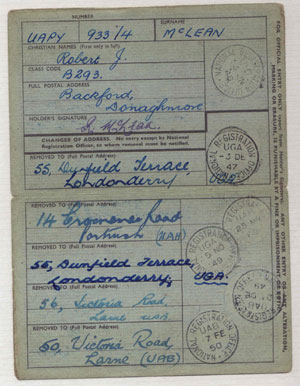 NUMBER SURNAME
UAPY 933/4 McLEAN
CHRISTIAN NAMES (First only in full)
Robert J.
CLASS CODE
B293.
FULL POSTAL ADDRESS
Backford,
Donaghmore
HOLDER'S SIGNATURE
R. McLean
CHANGES OF ADDRESS. No entry except by National
Registration Officer, to whom removal must be notified.
REMOVED TO (Full Postal Address)
55, Dunfield Terrace,
Londonderry
REMOVED TO (Full Postal Address)
14 Grosvenor Road
Portrush (UAH)
REMOVED TO (Full Postal Address)
55, Dunfield Terrace,
Londonderry, UGA.
REMOVED TO (Full Postal Address)
56, Victoria Road,
Larne UAB
REMOVED TO (Full Postal Address)
50, Victoria Road
Larne (UAB)
NATIONAL REGISTRATION OFFICE
UGA
-3 DE
47
NATIONAL REGISTRATION OFFICE
UAB
7 FE
50
FOR OFFICIAL ENTRY ONLY
ANY OTHER ENTRY OR ANY ALTERATION,
MARKING OR ERASURE, IS PUNISHABLE BY A FINE OR IMPRISONMENT OR BOTH